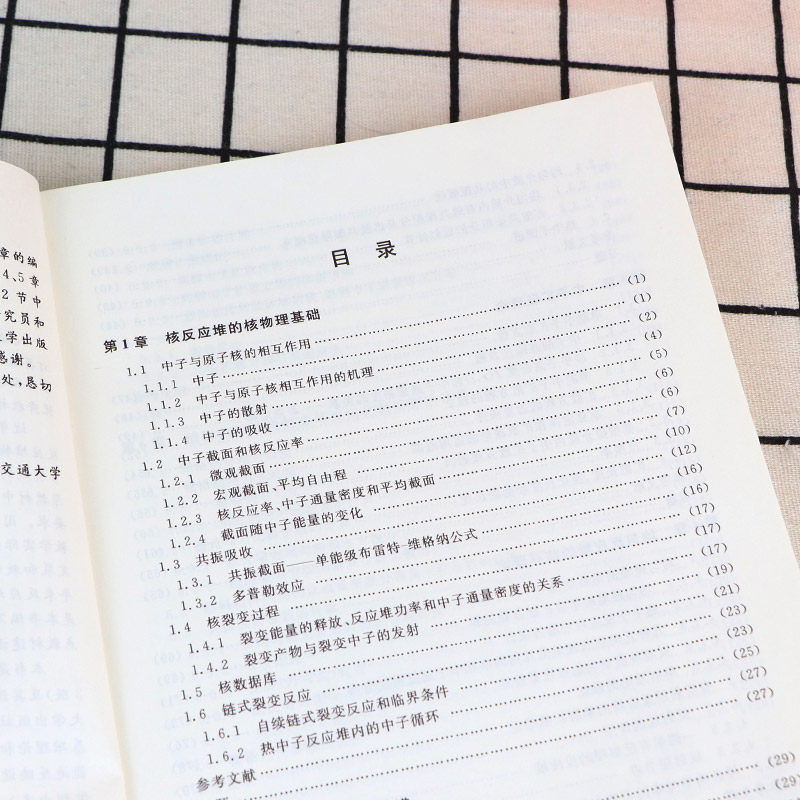 章的编
4、5 章
2 节中
究员和
学出版
感谢。
处,恳切
交通大学
目 录
第 1 章 核反应堆的核物理基础
1.1 中子与原子核的相互作用 (1)
1.1.1 中子 (1)
1.1.2 中子与原子核相互作用的机理 (2)
1.1.3 中子的散射 (4)
1.1.4 中子的吸收 (5)
1.2 中子截面和核反应率 (6)
1.2.1 微观截面 (6)
1.2.2 宏观截面、平均自由程 (7)
1.2.3 核反应率、中子通量密度和平均截面 (10)
1.2.4 截面随中子能量的变化 (12)
1.3 共振吸收 (16)
1.3.1 共振截面——单能级布雷特-维格纳公式 (16)
1.3.2 多普勒效应 (17)
1.4 核裂变过程 (17)
1.4.1 裂变能量的释放、反应堆功率和中子通量密度的关系 (17)
1.4.2 裂变产物与裂变中子的发射 (19)
1.5 核数据库 (21)
1.6 链式裂变反应 (23)
1.6.1 自续链式裂变反应和临界条件 (23)
1.6.2 热中子反应堆内的中子循环 (25)
参考文献 (27)
(27)
(29)
(29)